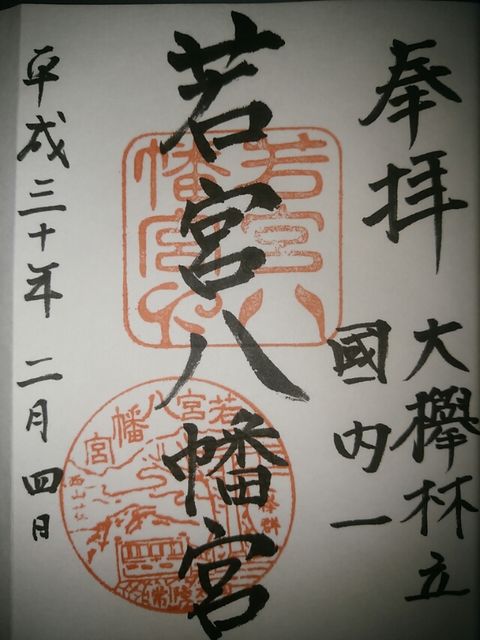 奉拝
大欅林立
國内一
若宮八幡宮
若宮八
幡宮印
若宮八幡宮
常陸
平成三十年 二月 四日